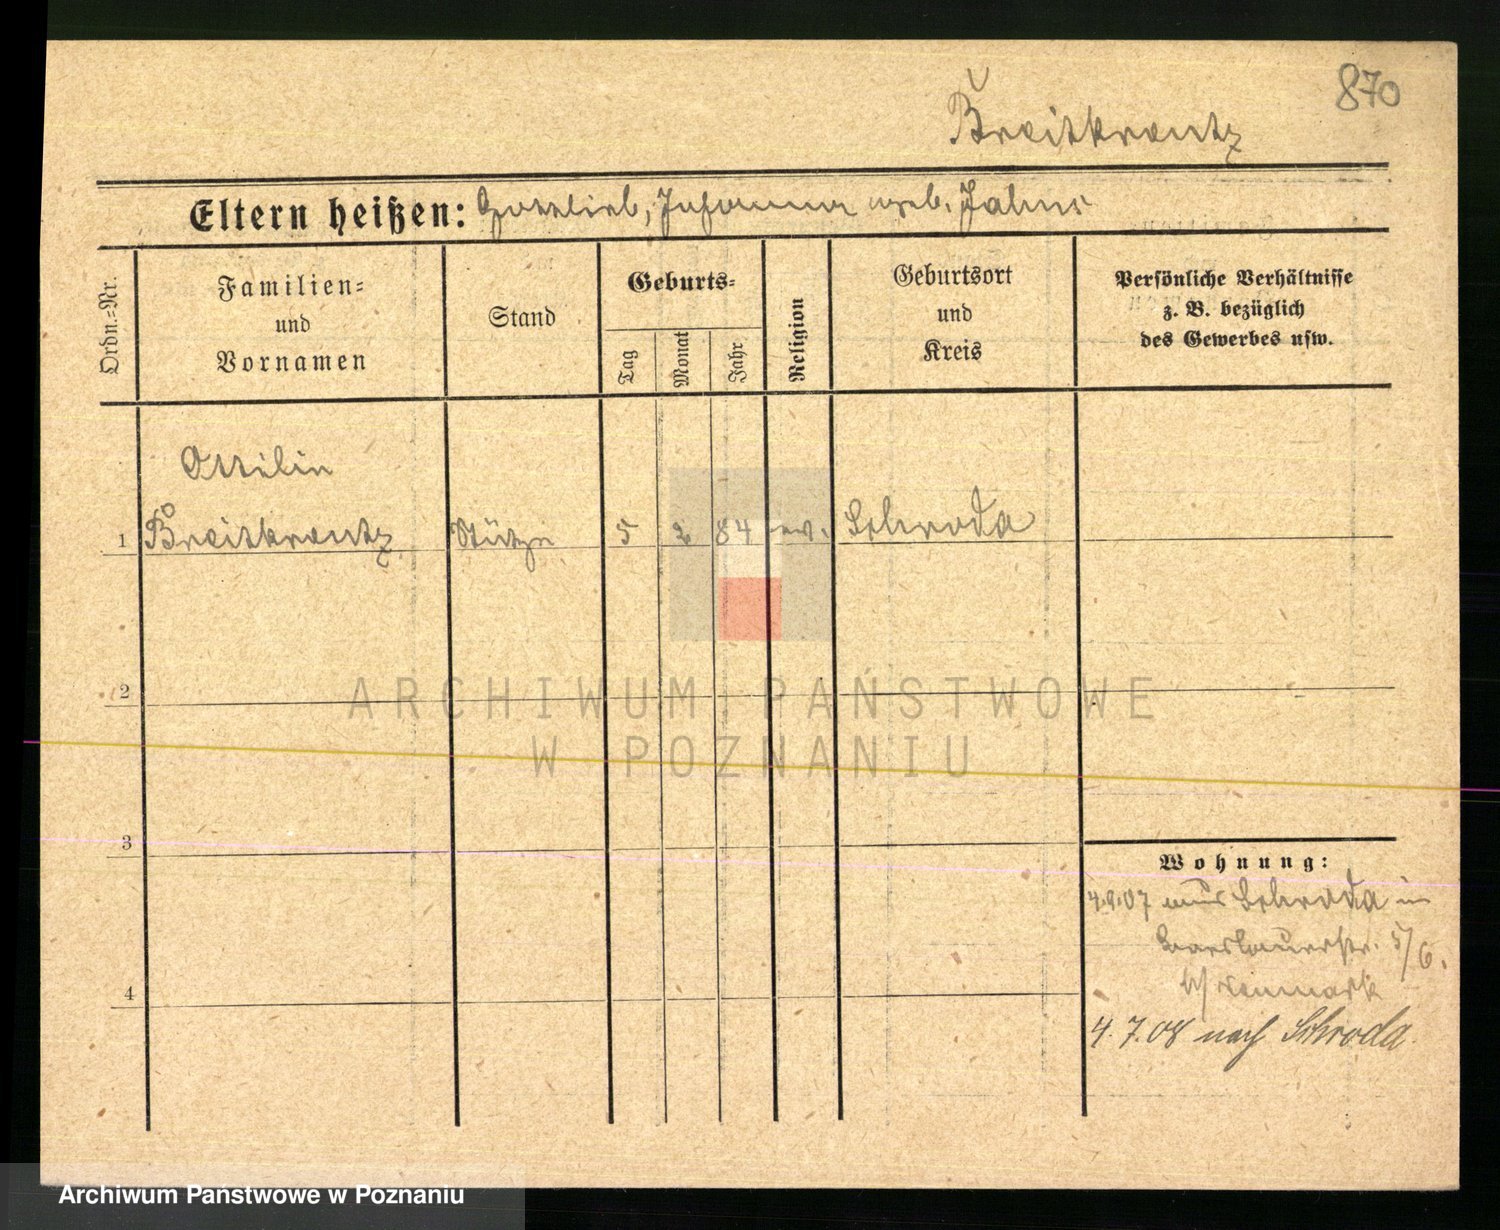 870
Breitkreutz
Eltern heißen: Gottlieb, Johanna geb. Jahns
Ordn.-Nr.
Familien-
und
Vornamen
Stand
Geburts-
Tag
Monat
Jahr
Religion
Geburtsort
und
Kreis
Persönliche Verhältnisse
z. B. bezüglich
des Gewerbes usw.
Ottilie
1 Breitkreutz Stütze 5 2 84 ev. Schroda
2
ARCHIWUM PAŃSTWOWE
W POZNANIU
3
Wohnung:
4.9.07 aus Schroda in
5/6.
4
4.7.08 nach Schroda.
Archiwum Państwowe w Poznaniu